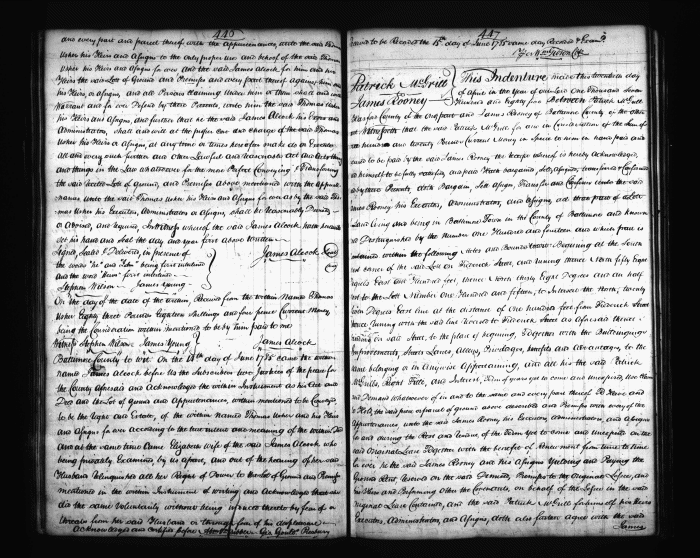 446
and every part and parcel thereof with the Appurtenances unto the said Thomas
Usher his Heirs and Assigns to the only proper use and behoof of the said Thomas
Usher his Heirs and Assigns for ever and the said James Alcock for him and his
Heirs the said Lot of Ground and Premises and every part thereof against him and
his Heirs, or Assigns, and all Persons claiming Under him or them shall and will
Warrant and for ever Defend by these Presents, unto him the said Thomas Usher
his Heirs and Assigns, and further that he the said James Alcock his Executors and
Administrators, shall and will at the proper cost and charge of the said Thomas
Usher his Heirs or Assigns, at any time or times hereafter make do or Execute,
all and every such further and other Lawful and reasonable act and Acts thing
and things in the Law whatsoever for the more Perfect Conveying & Transferring
the said Lot of Ground, and Premises above mentioned with the Appurte-
nances unto the said Thomas Usher his Heirs and Assigns for ever as by the said Tho-
mas Usher his Executors, Administrators or Assigns, shall be Reasonably Devised
or Advised, and required, In Witness whereof the said James Alcock hath hereunto
set his hand and Seal the day and year first above Written
Signed, Sealed & Delivered, in presence of
James Alcock Seal
being first interlined
and the word first interlined
Stephen Wilson James Young
On the day of the date of the within, Received from the within Named Thomas
Usher Eighty three Pounds Eighteen Shillings and four pence Current Money
being the Consideration within mentioned to be by him paid to me
Witness Stephen Wilson James Young James Alcock
Baltimore County to wit. On the 14th day of June 1785 came the within
named James Alcock before Us the Subscribers two Justices of the peace for
the County aforesaid and Acknowledged the within Instrument as his Act and
Deed and the Lot of Ground and Appurtenances, within mentioned to be Conveyed
to be the Right and Estate, of the within Named Thomas Usher and his Heirs
and Assigns for ever according to the true intent and meaning of the within
And at the same time Came Elizabeth Wife of the said James Alcock who
being privately Examined, by us apart, and out of the hearing of her said
Husband Relinquished all her Right of Dower to the Lot of Ground and Premises
mentioned in the within Instrument of writing and Acknowledged that she
did the same Voluntarily without being induced thereto by fear or
threats from her said Husband or through fear of his displeasure
Acknowledged and certified before Geo Gouldt Presbury
447
day of June 1785 same day Recorded & Exam.d
Wm Gibson Clk
Patrick McGrill
to
James Rooney
This Indenture made this day
of April in the Year of our Lord One Thousand Seven
Hundred and Eighty five Between Patrick McGrill
County of the one part and James Rooney of Baltimore County of the other
Witnesseth that the said Patrick McGrill for and in Consideration of the Sum of
hundred and twenty Pounds Current Money in Specie to him in hand paid and
to be paid by the said James Rooney the Receipt whereof he hereby Acknowledges,
himself to be fully satisfied and paid Hath bargained, sold, assigned, transferred & Confirmed
by these Presents, doth Bargain, Sell Assign, Transfer and Confirm unto the said
James Rooney his Executors, Administrators, and Assigns, all that part of a Lott
Land lying and being in Baltimore Town in the County of Baltimore and known
Distinguished by the Number One Hundred and fourteen and which part is
contained within the following Metes and Bounds to wit, Beginning at the South
corner of the said Lott on Frederick Street, and running thence North fifty Eight
degrees East One Hundred feet, thence North thirty Eight Degrees and an half
to the Lott Number One Hundred and fifteen, to intersect the North, twenty
seven Degrees East line at the distance of One hundred feet from Frederick Street
thence Running with the said line Reversed to Frederick Street as aforesaid thence
said Street, to the place of Beginning, Together with the Buildings
Improvements, Streets Lanes, Alleys, Privileges, benefits and Advantages, to the
same belonging or in Anywise Appertaining, and all his the said Patrick
McGrills, Right Title, and Interest, Term of years yet to come and unexpired, use Claim
and Demand whatsoever of in and to the same and every part thereof To Have and
to Hold, the said part of a Lott of ground above described and Premises with every of the
Appurtenances, unto the said James Rooney his Executors, Administrators, and Assigns,
for and during the Rest and residue of the Term yet to come and unexpired on the
said Original Lease Together with the benefit of Renewment from time to time
for ever he the said James Rooney and his Assigns Yielding and Paying the
Ground Rent Reserved on the said Demised Premises to the Original Lessor, and
his Heirs and Performing the Covenants on behalf of the Lessee in the said
Original Lease Contained, and the said Patrick McGrill for himself his Heirs
Executors, Administrators, and Assigns, doth also further Agree with the said
James